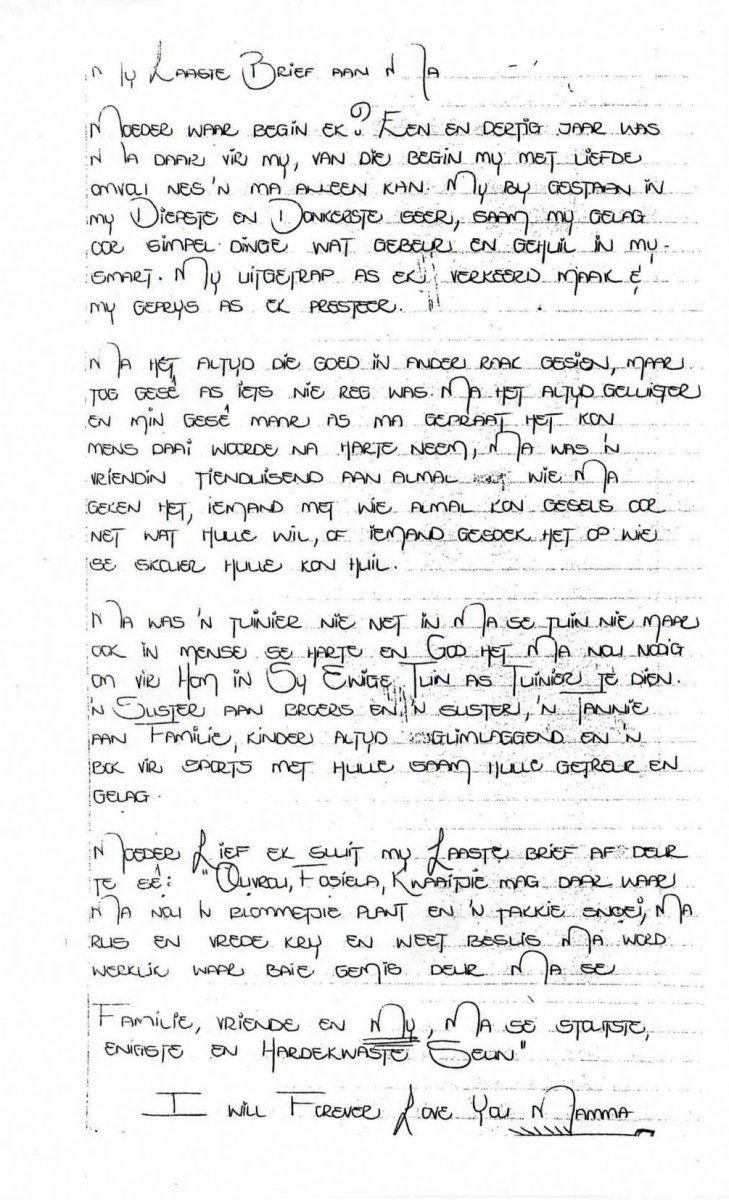 My Laaste Brief aan Ma
Moeder waar begin ek? Een en dertig jaar was
Ma daar vir my, van die begin my met liefde
omvou nes 'n ma alleen kan. My by gestaan in
my Diepste en Donkerste seer, saam my gelag
oor simpel dinge wat gebeur en gehuil in my
smart. My uitgetrap as ek verkeerd maak &
my geprys as ek presteer.
Ma hét altyd die goed in ander raak gesien, maar
tog gesê as iets nie reg was. Ma het altyd geluister
en min gesê maar as ma gepraat het kon
mens daai woorde na harte neem, Ma was 'n
vriendin tienduisend aan almal wie Ma
geken het, iemand met wie almal kon gesels oor
net wat hulle wil, of iemand gesoek het op wie
se skouer hulle kon huil.
Ma was 'n tuinier nie net in Ma se tuin nie maar
ook in mense se harte en God het Ma nou nodig
om vir Hom in Sy Ewige Tuin as Tuinier te dien.
'n Suster aan broers en 'n suster, 'n Tannie
aan Familie, kinder altyd glimlaggend en 'n
bok vir sports met hulle saam hulle getreur en
gelag.
Moeder Lief ek sluit my Laaste brief af deur
te sê: "Ouvrou, Fosiela, Knaaitjie mag daar waar
Ma nou 'n blommetjie plant en 'n takkie snoei, Ma
rus en vrede kry en weet beslis Ma word
werklik waar baie gemis deur Ma se
Familie, vriende en My, Ma se stoutste,
enigste en Hardekwaste Seun"
I will Forever Love You Mamma